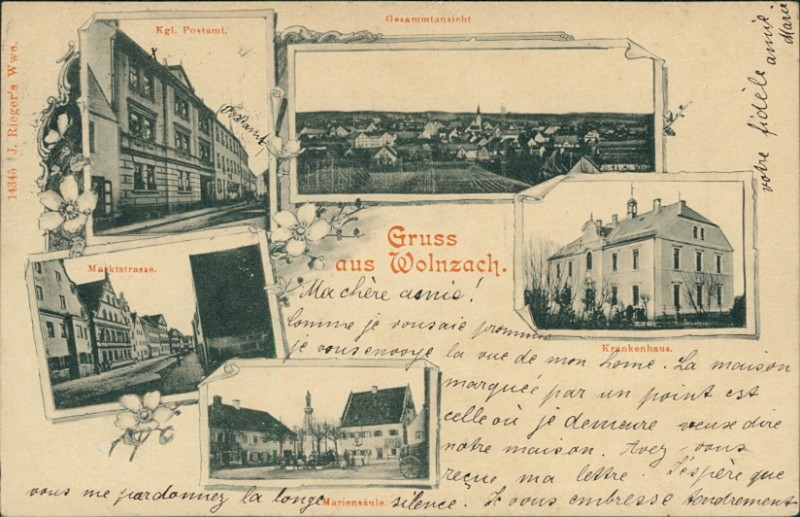 Kgl. Postamt.
Gesammtansicht.
14345 J. Rieger's Wwe.
Gruss
aus Wolnzach.
Marktstrasse.
Krankenhaus.
Mariensäule.
Ma chère amie!
Comme je vous aie prommis
je vous envoye la vue de mon home. La maison
marquée par un point est
celle où je demeure veux dire
notre maison. Avez-vous
reçue ma lettre. J'espère que
vous me pardonnez la longe silence. Je vous embresse tendrement
votre fidèle amie
Marie